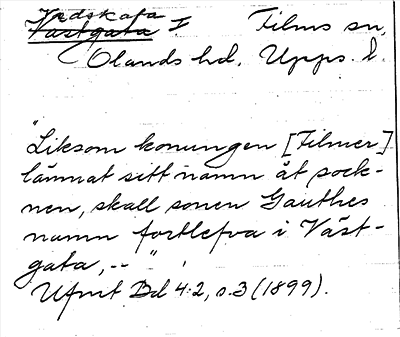 Jordskafa
Västgata I Films sn,
Olands hd, Upps. l.
"Liksom konungen [Filmer]
lämnat sitt namn åt sock-
nen, skall sonen Gauthes
namn fortlefva i Väst-
gata, -- " .
Ufmt Bd 4:2, s. 3 (1899).